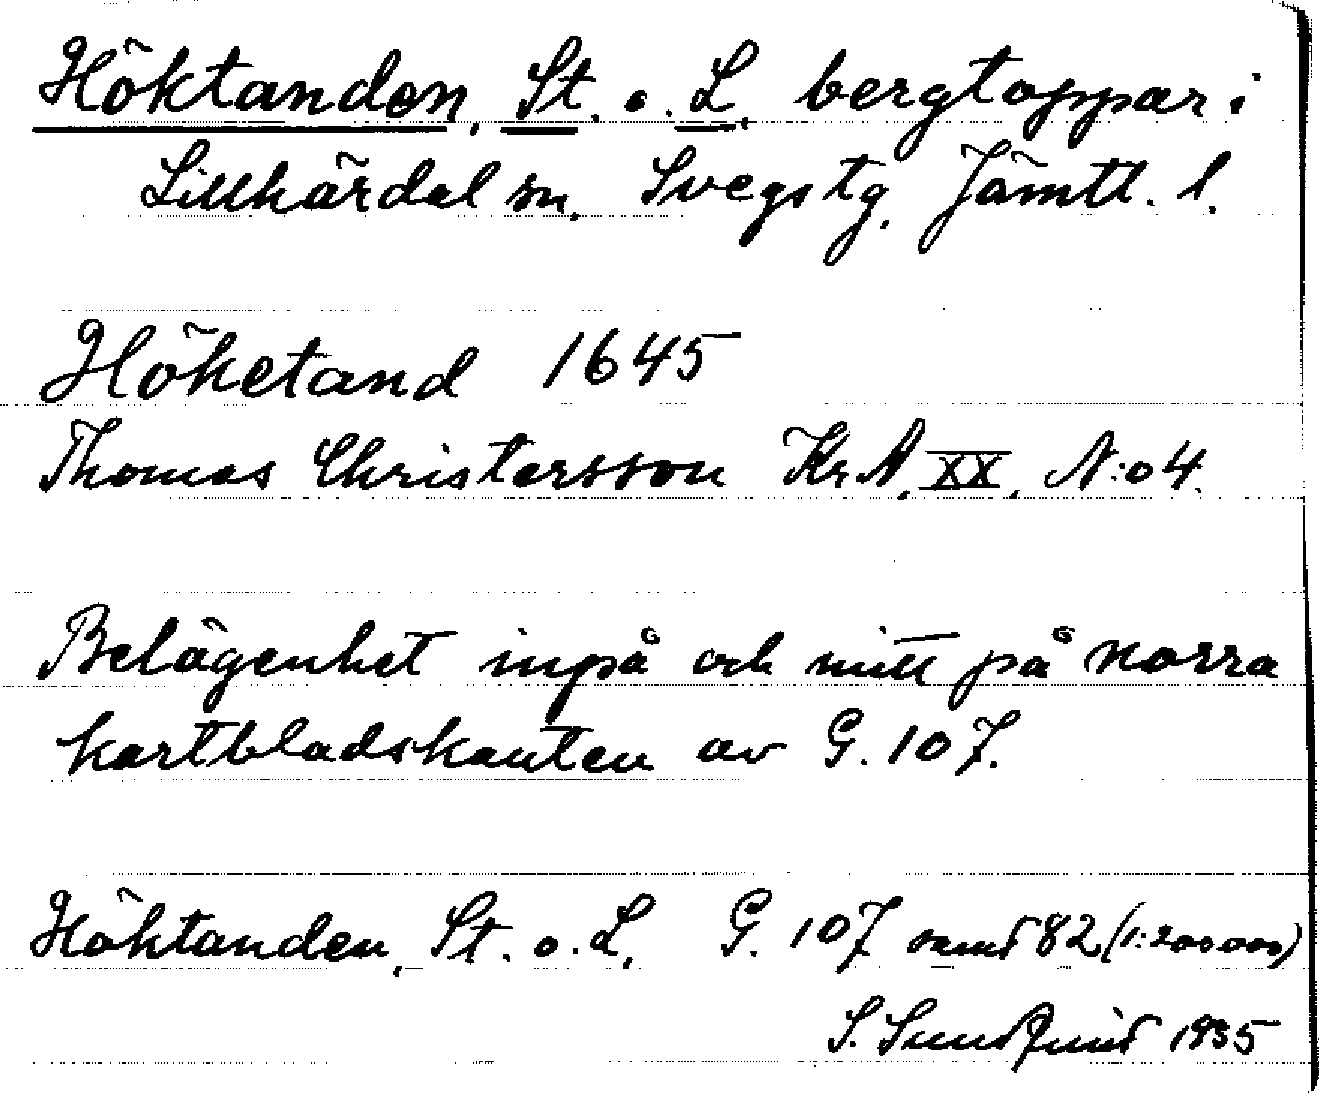 Höktanden, St. o. L. bergtoppar i
Lillhärdal sn. Svegs tg. Jämtl. l.
Höketand 1645
Thomas Christersson Kr.A. XX, N:o 4.
Belägenhet inpå och mitt på norra
kartbladskanten av G. 107.
Höktanden, St. o. L. G. 107 samt 82 (1:200000)
S. Sundquist 1935